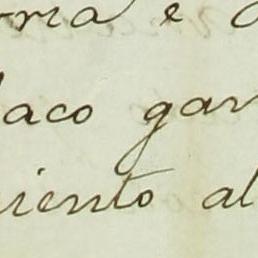 oria e
laco gar
iento al